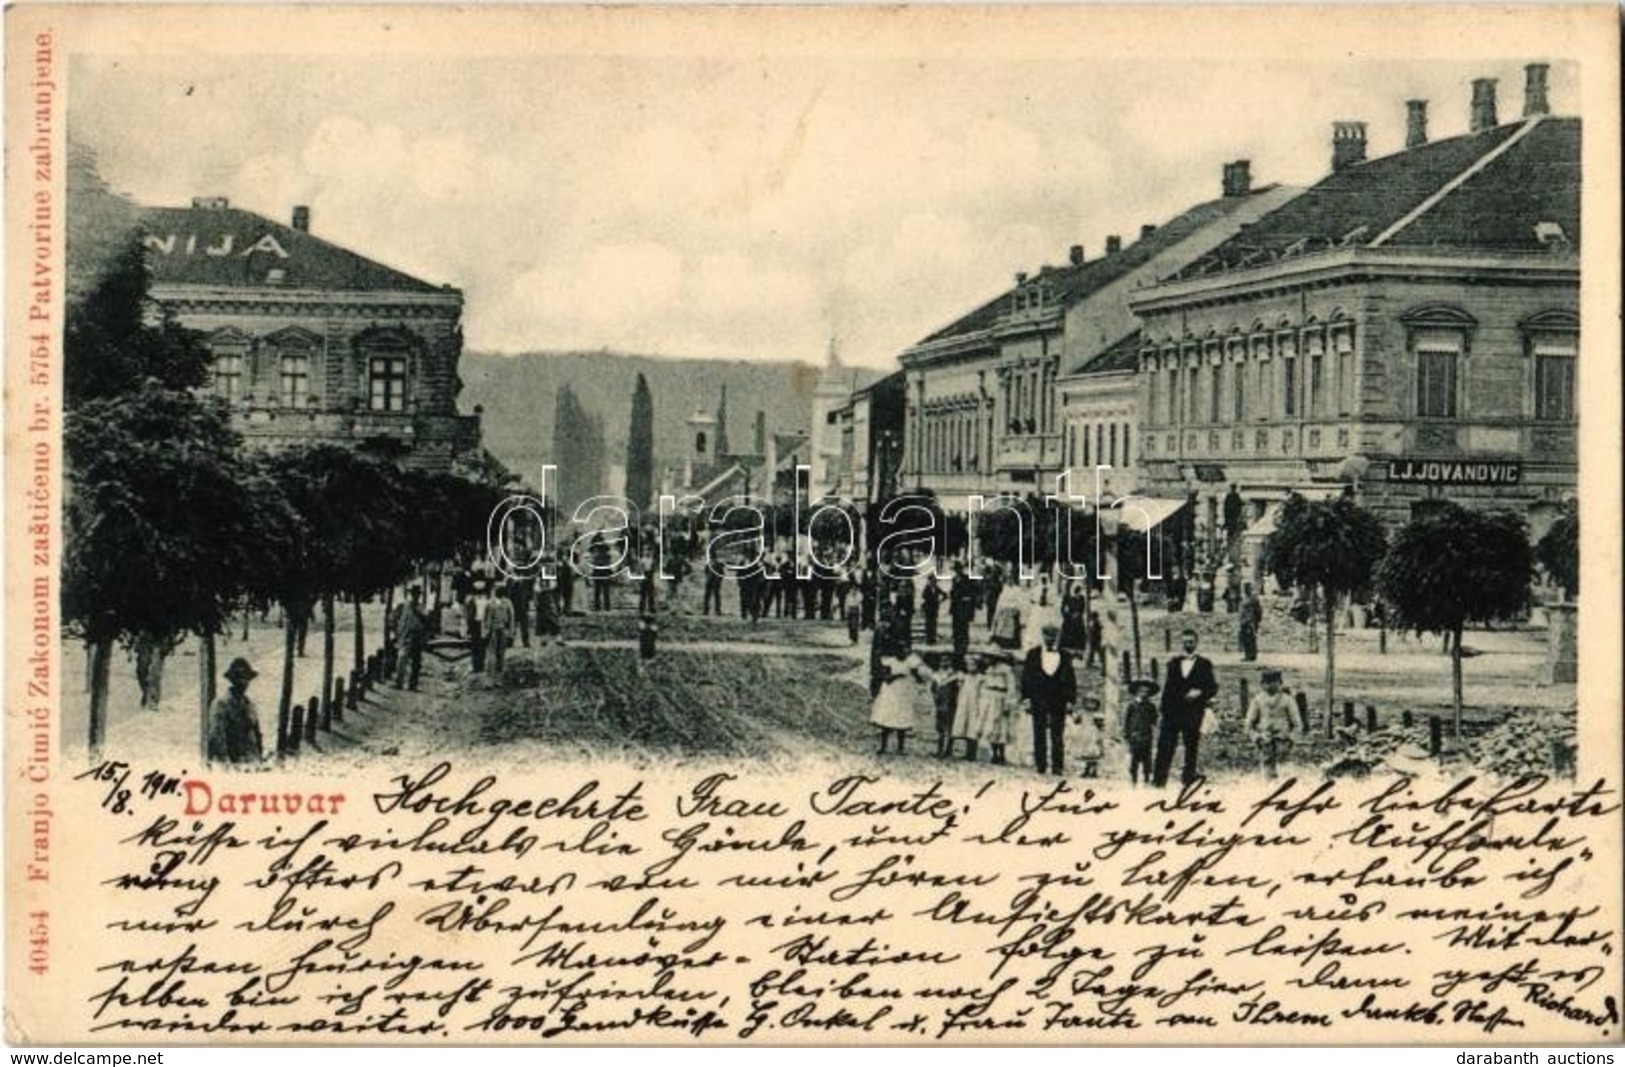 40454 Franjo Čimić Zakonom zaštićeno br. 5754 Patvorine zabranjene.
NIJA
L.J.JOVANOVIC
darabanth
15./8. 1901.
Daruvar
Hochgeehrte Frau Tante! Für die sehr liebe Karte
küsse ich vielmals die Hände, und der gütigen Aufforde„
rung öfters etwas von mir hören zu lassen, erlaube ich
mir durch Übersendung einer Ansichtskarte aus meiner
ersten heurigen Manöver-Station folge zu leisten. Mit der„
selben bin ich recht zufrieden, bleiben noch 2 Tage hier, dann geht es
wieder weiter. 1000 Handküsse H. Onkel u. Frau Tante von Ihrem dankb. Neffen
Richard.
darabanth auctions